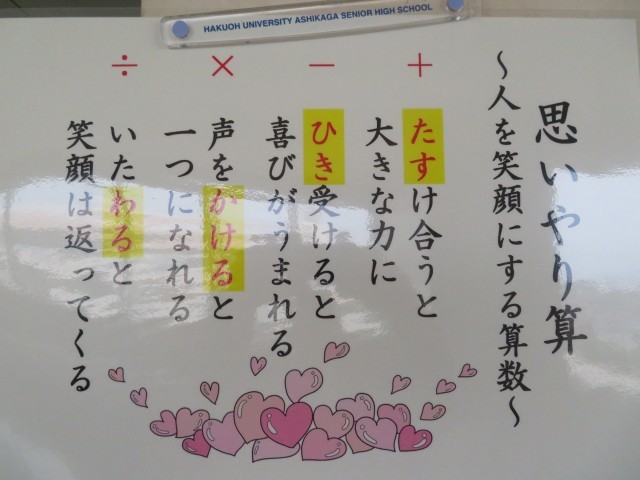 HAKUOH UNIVERSITY ASHIKAGA SENIOR HIGH SCHOOL
思いやり算
～人を笑顔にする算数～
＋
たすけ合うと
大きな力に
－
ひき受けると
喜びがうまれる
×
声をかけると
一つになれる
÷
いたわると
笑顔は返ってくる